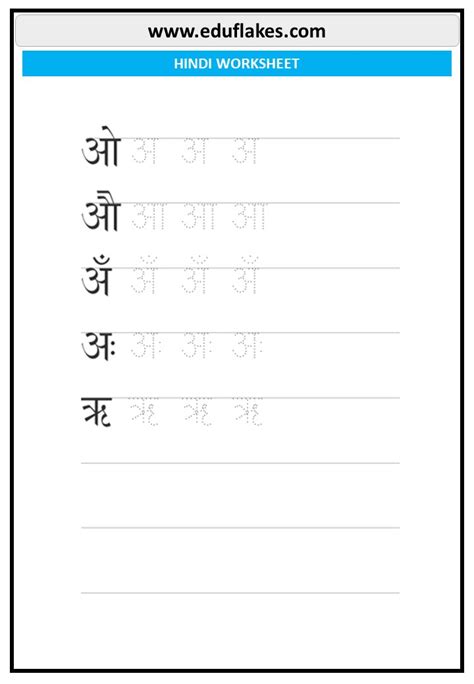 www.eduflakes.com
HINDI WORKSHEET
ओ अ अ अ
औ आ आ आ
अँ अँ अँ अँ
अः अः अः अः
ऋ ऋ ऋ ऋ